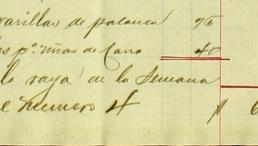 varillas de palanca 96
p.ª riñas de Cano 40
la raya de la Semana
e numero 4 $ 6